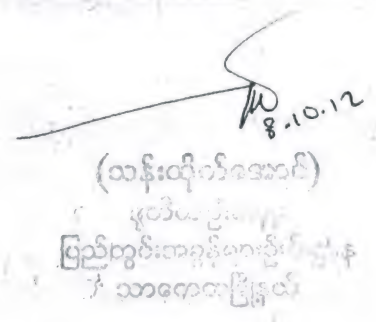 8.10.12
(သန်းထိုက်အောင်)
ဒုတိယဦး
ပြည်တွင်းအခွန်များဦးစီးဌာန
သာကေတမြို့နယ်